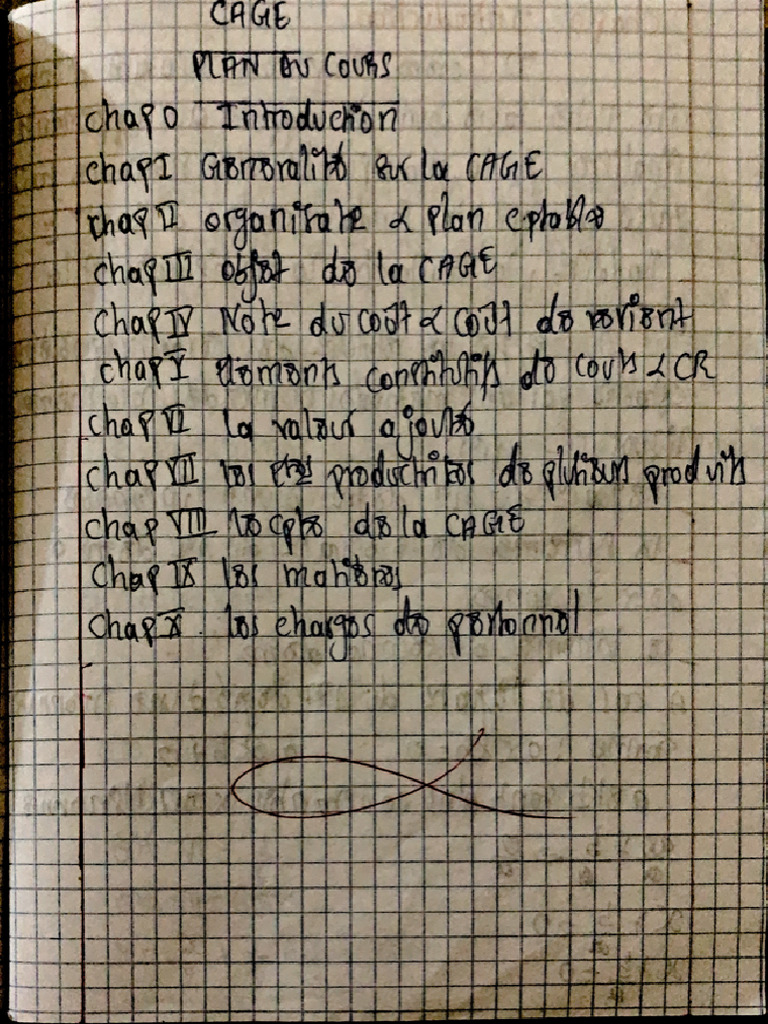 CAGE
PLAN DU COURS
Chap 0 Introduction
chap I Généralités sur la CAGE
chap II organisate & plan cptable
chap III objet de la CAGE
Chap IV Note du coût & coût de revient
chap V éléments constitutifs de & CR
Chap VI la valeur ajouté
Chap VII les productrices de plusieurs produits
Chap VIII le cpte de la CAGE
Chap IX les matières
Chap X. les charges de personnel